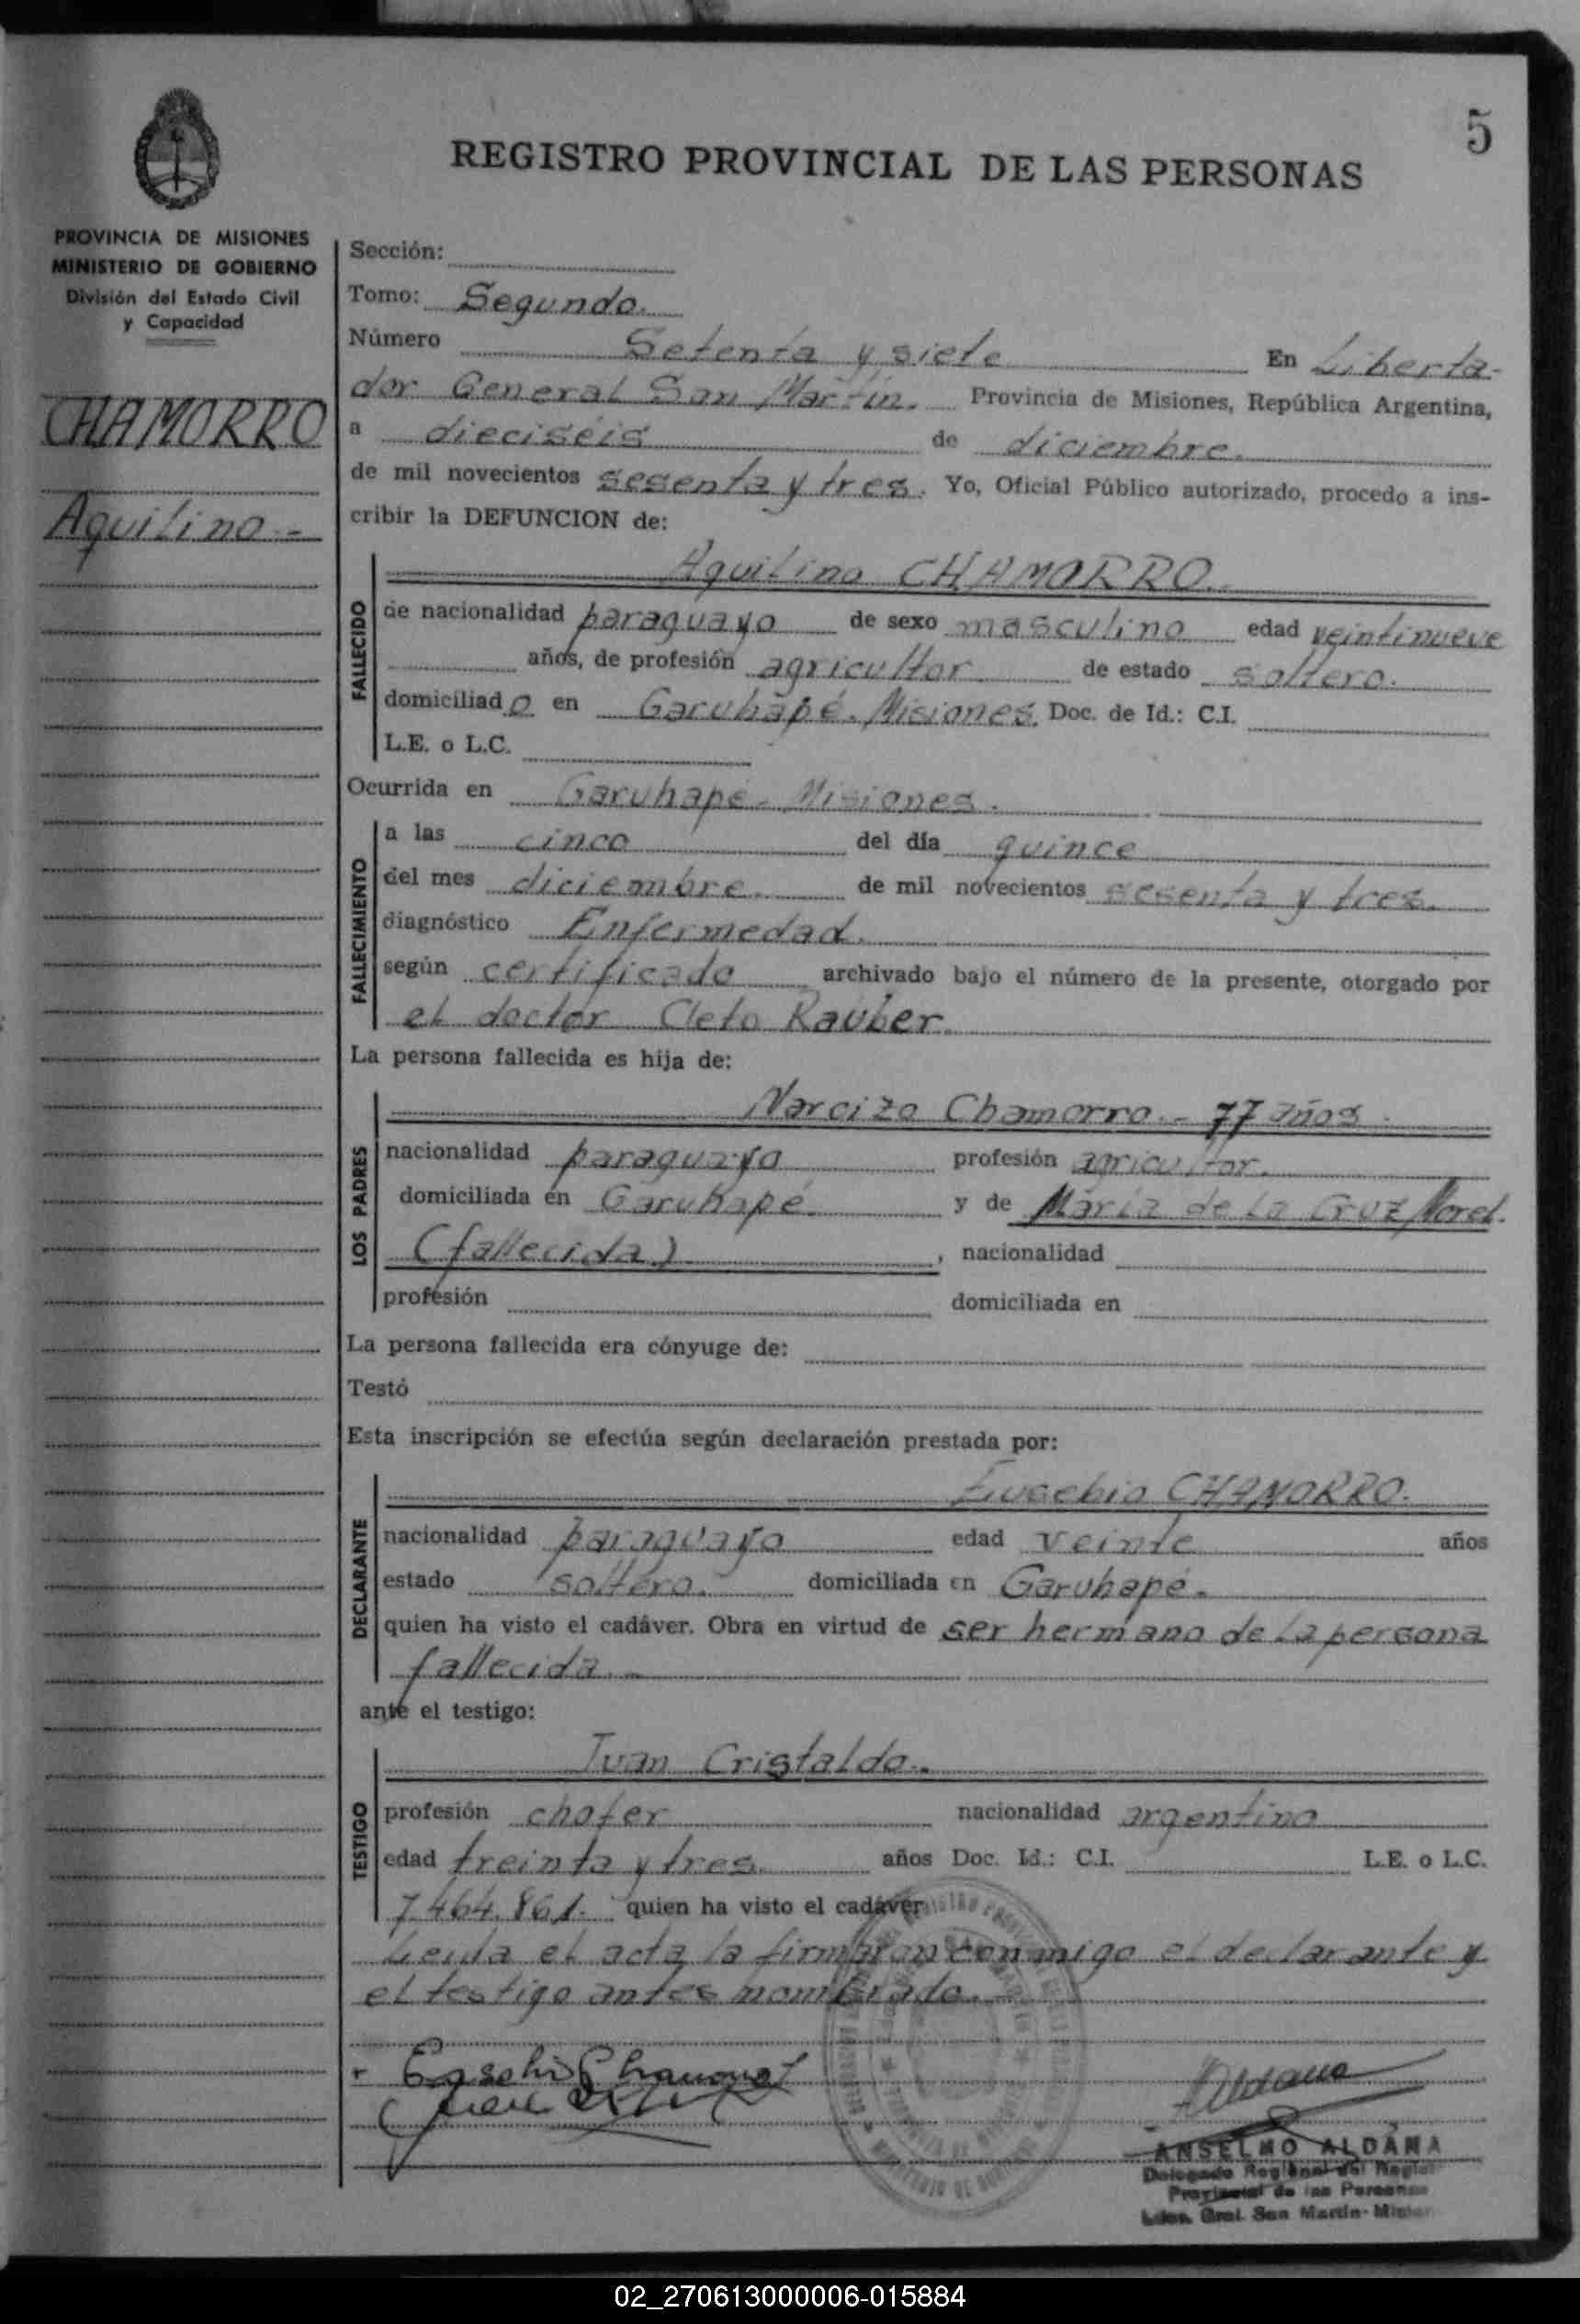 5
REGISTRO PROVINCIAL DE LAS PERSONAS
PROVINCIA DE MISIONES
MINISTERIO DE GOBIERNO
División del Estado Civil
y Capacidad
CHAMORRO
Aquilino.-
Sección:
Tomo: Segundo.
Número Setenta y siete En Liberta-
dor General San Martín. Provincia de Misiones, República Argentina,
a dieciséis de diciembre.
de mil novecientos sesenta y tres. Yo, Oficial Público autorizado, procedo a ins-
cribir la DEFUNCION de:
FALLECIDO
Aquilino CHAMORRO.
de nacionalidad paraguayo de sexo masculino edad veintinueve
años, de profesión agricultor de estado soltero.
domiciliado en Garuhapé. Misiones. Doc. de Id.: C.I.
L.E. o L.C.
Ocurrida en Garuhapé - Misiones.
FALLECIMIENTO
a las cinco del día quince
del mes diciembre. de mil novecientos sesenta y tres.
diagnóstico Enfermedad.
según certificado archivado bajo el número de la presente, otorgado por
el doctor Cleto Rauber.
La persona fallecida es hija de:
LOS PADRES
Narcizo Chamorro.- 77 años.
nacionalidad paraguayo profesión agricultor.
domiciliada en Garuhapé. y de María de la Cruz Morel.
(fallecida), nacionalidad
profesión domiciliada en
La persona fallecida era cónyuge de:
Testó
Esta inscripción se efectúa según declaración prestada por:
DECLARANTE
Eusebio CHAMORRO.
nacionalidad paraguayo edad veinte años
estado soltero. domiciliada en Garuhapé.
quien ha visto el cadáver. Obra en virtud de ser hermano de la persona
fallecida.-
ante el testigo:
TESTIGO
Juan Cristaldo..
profesión chofer nacionalidad argentino
edad treinta y tres años Doc. Id.: C.I. L.E. o L.C.
7.464.861. quien ha visto el cadáver
Leída el acta la firmaron conmigo el declarante y
el testigo antes nombrado.-
Aldana
ANSELMO ALDANA
Delegado Regional del
Provincial de las Personas
Ldor. Gral. San Martín-
02_270613000006-015884